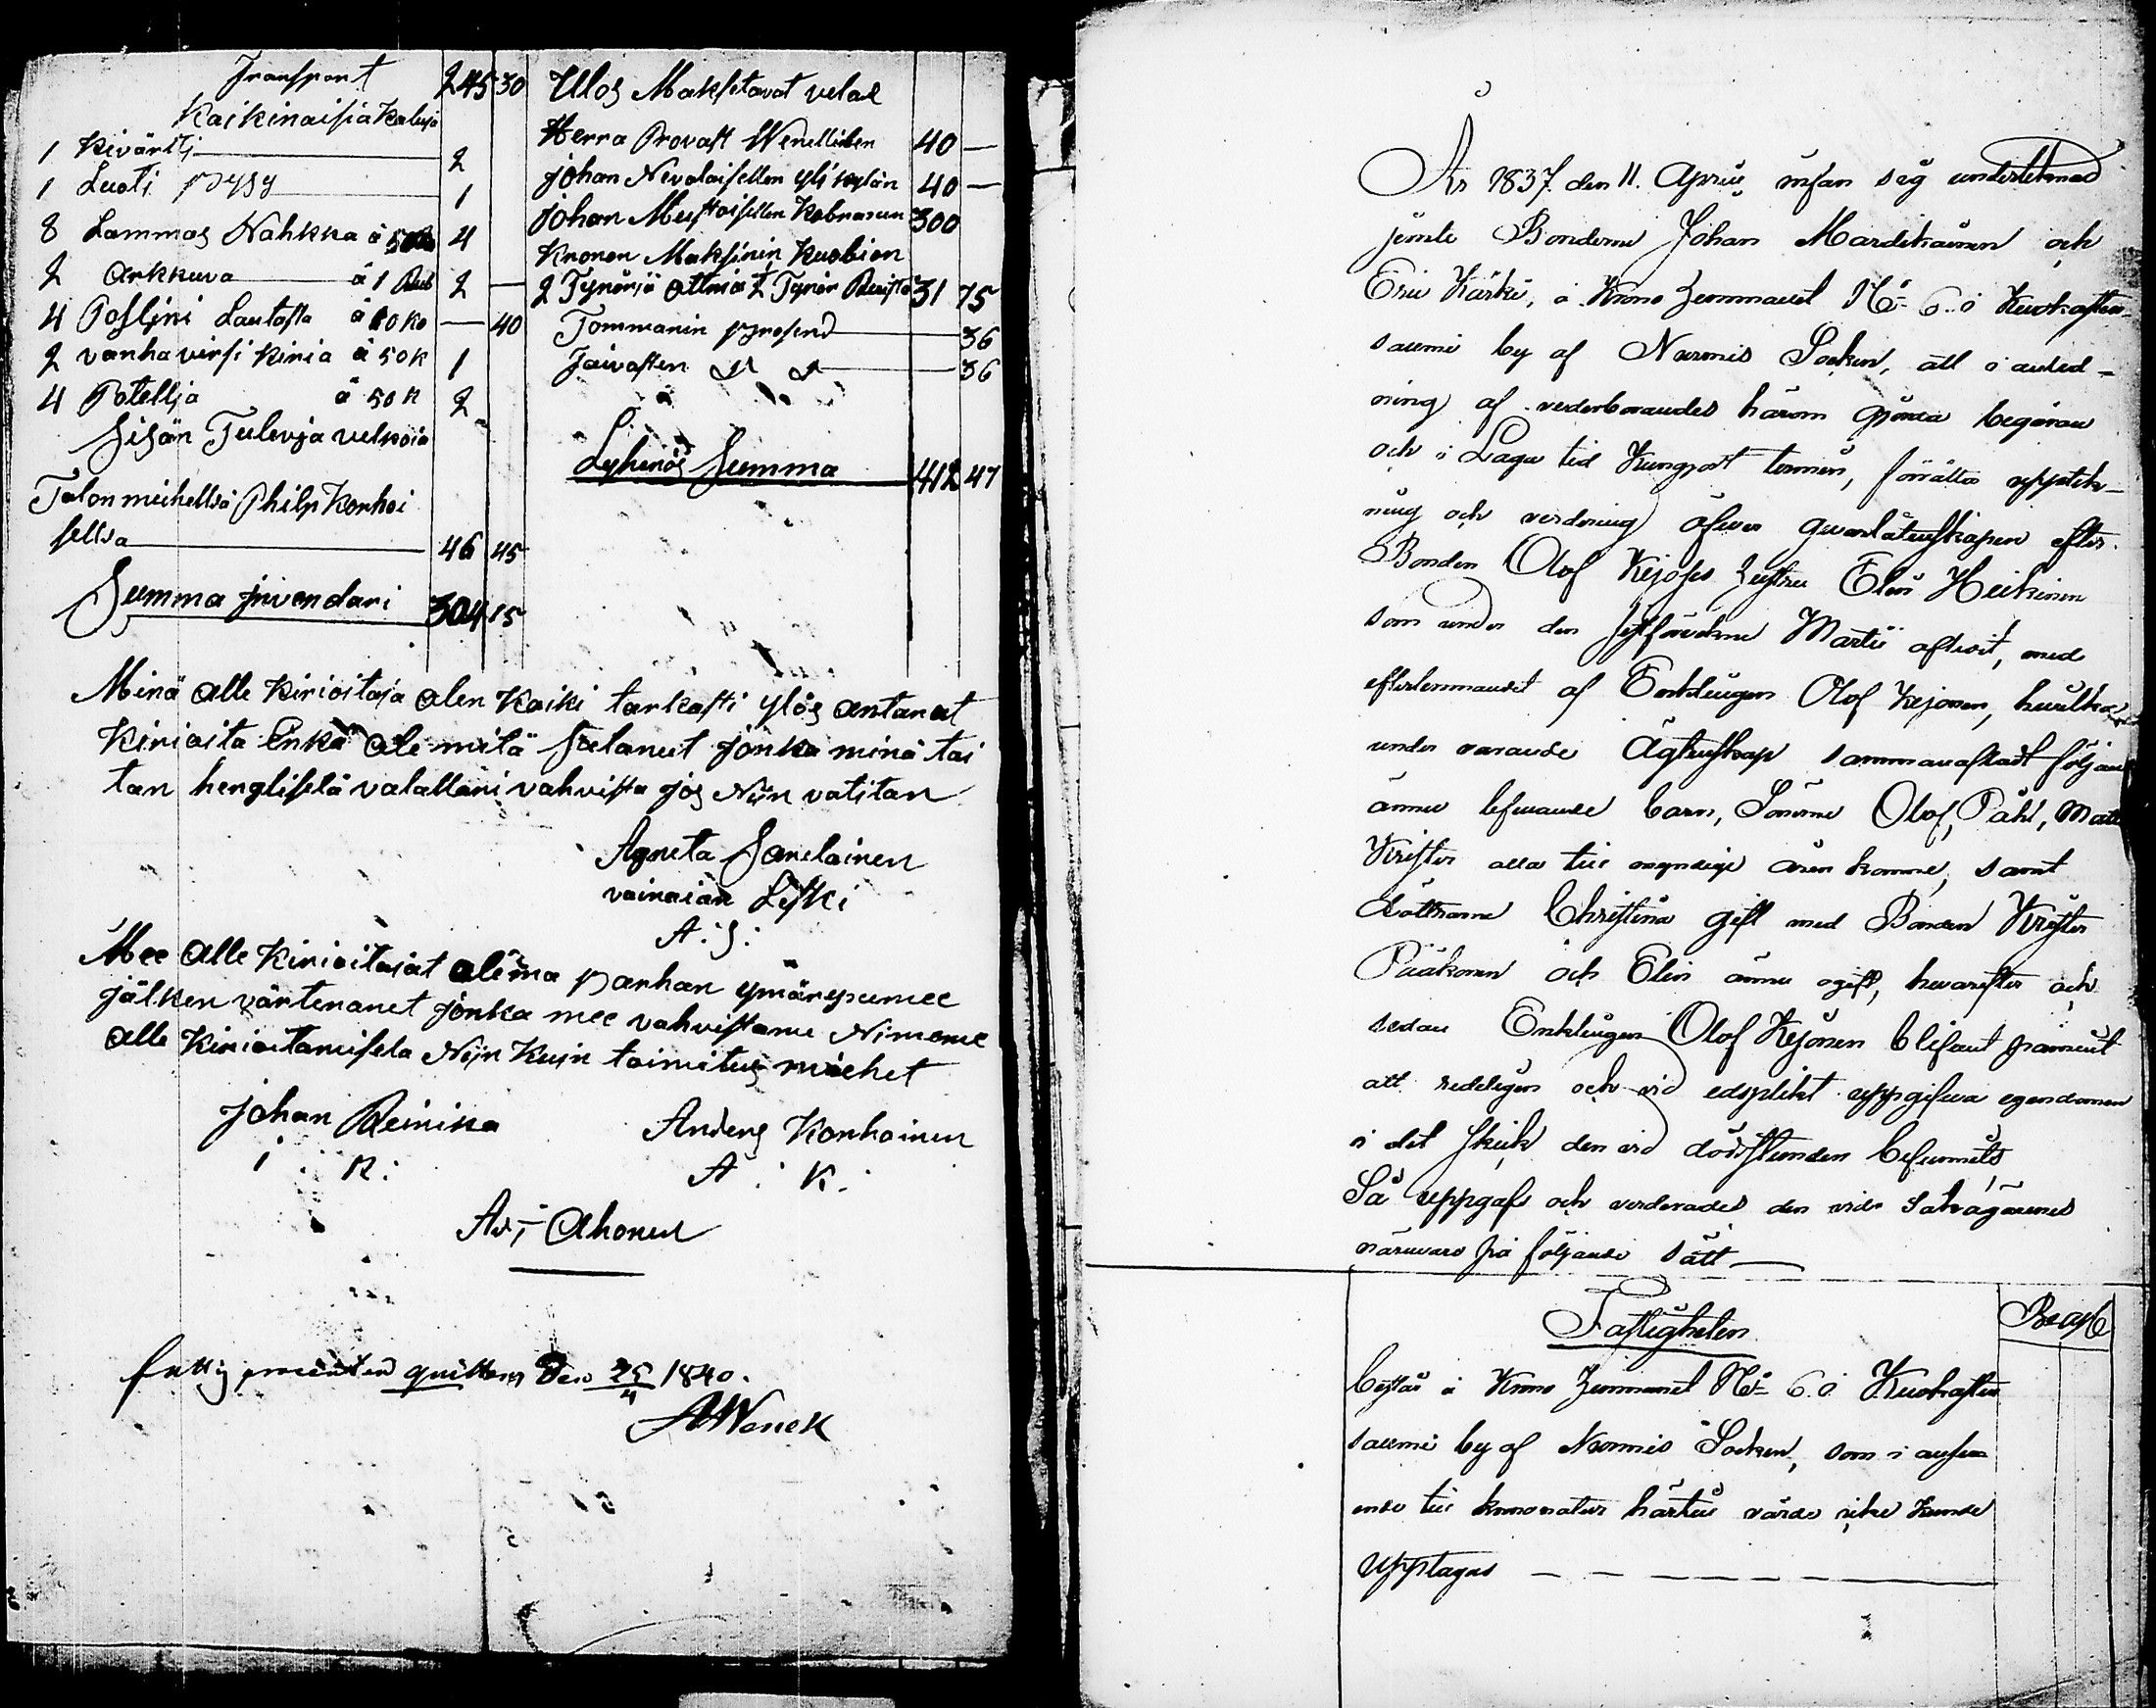 Transport 245 30
Kaikinaisia Kaluja
1 Kiväriti 2
1 Luoti pysy 1
8 Lammas Nahkka à 50 4
2 Arkkuva à 1 Rub 2 —
4 Poslini Lautasta à 10 ko — 40
2 vanha virsi kiria à 50 k 1
4 Potellja à 50 k 2
Sisän Tulevja velkoia
Talon miehellsä Philp Korhoi
sellda 46 45
Summa Inventari 304 15
Ulos Maksetavat velat
Herra Provast Wenellillen 40 —
Johan Nevalaisellen yli kylän 40 —
Johan Mustoisellen Kabrasun 300
Kronon Maksinin Kuobion
2 Tynöriä Ottria 2 Tynör Ruista 31 75
Tommarin prosend 36
Faivasten 36
Lyhenös Summa 412 47
Minä alle Kirioitaja olen Kaiki tarkasti ylös antanut
Kirioita Enkä ole mitä salanut jonka minä tai
tan henglisela valallani vahvista jos Niin vatitan
Agneta Sarelainen
vainaian Leski
A: S:
Mee alle Kirioitajat olema parhan ymärysemee
jälken värteranet jonka mee vahvistame Nimeme
alle Kirioitamisela Niin Kuin toimitus miehet
Johan Reinika Anders Korhoinen
I : R: A : K:
Ad; Ahonen
fattig procenten quitteras Den 25/4 1840.
A Wenell
År 1837 den 11. April infan sig undertecknad
jemte Bönderne Johan Mardikainen och
Eric Kärki, å Krono Hemmanet No 6. i Kuokasten-
saumi by af Nurmis Socken, att i anled-
ning af vederborandes härom gjorda begäran
och i Laga tid Kungjort termin, förrätta uppteck-
ning och värdering öfver qvarlåtenskapen efter
Bonden Olof Kejoses hustru Elin Heikinen
som under den sistförvekne Martii aflidit, med
efterlemnandet af Enklingen Olof Kejonen, hvilka
under varande Ägtenskap sammanaflat följan
ännu lefvande barn, Sönerne Olof, Påhl, Matts
Krister alla till myndige åren komne, samt
döttrarne Christina gift med Bonden Krister
Pääkonen och Elin ännu ogift, hvarefter och
sedan Enklingen Olof Kejonen blifvit påmint
att redeligen och vid edsplikt uppgifva egendomen
i det skick den vid dödsstunden befunnits
Så uppgafs och verderades den vide Sakägarnes
närvaro på följande sätt —
Fastigheten
Består i Krono Hemmanet No 6. i Kuokasten
saumi by af Nurmis Socken, som i anse
ende till krononatur härtill värde icke kunde
upptagas — — — — —